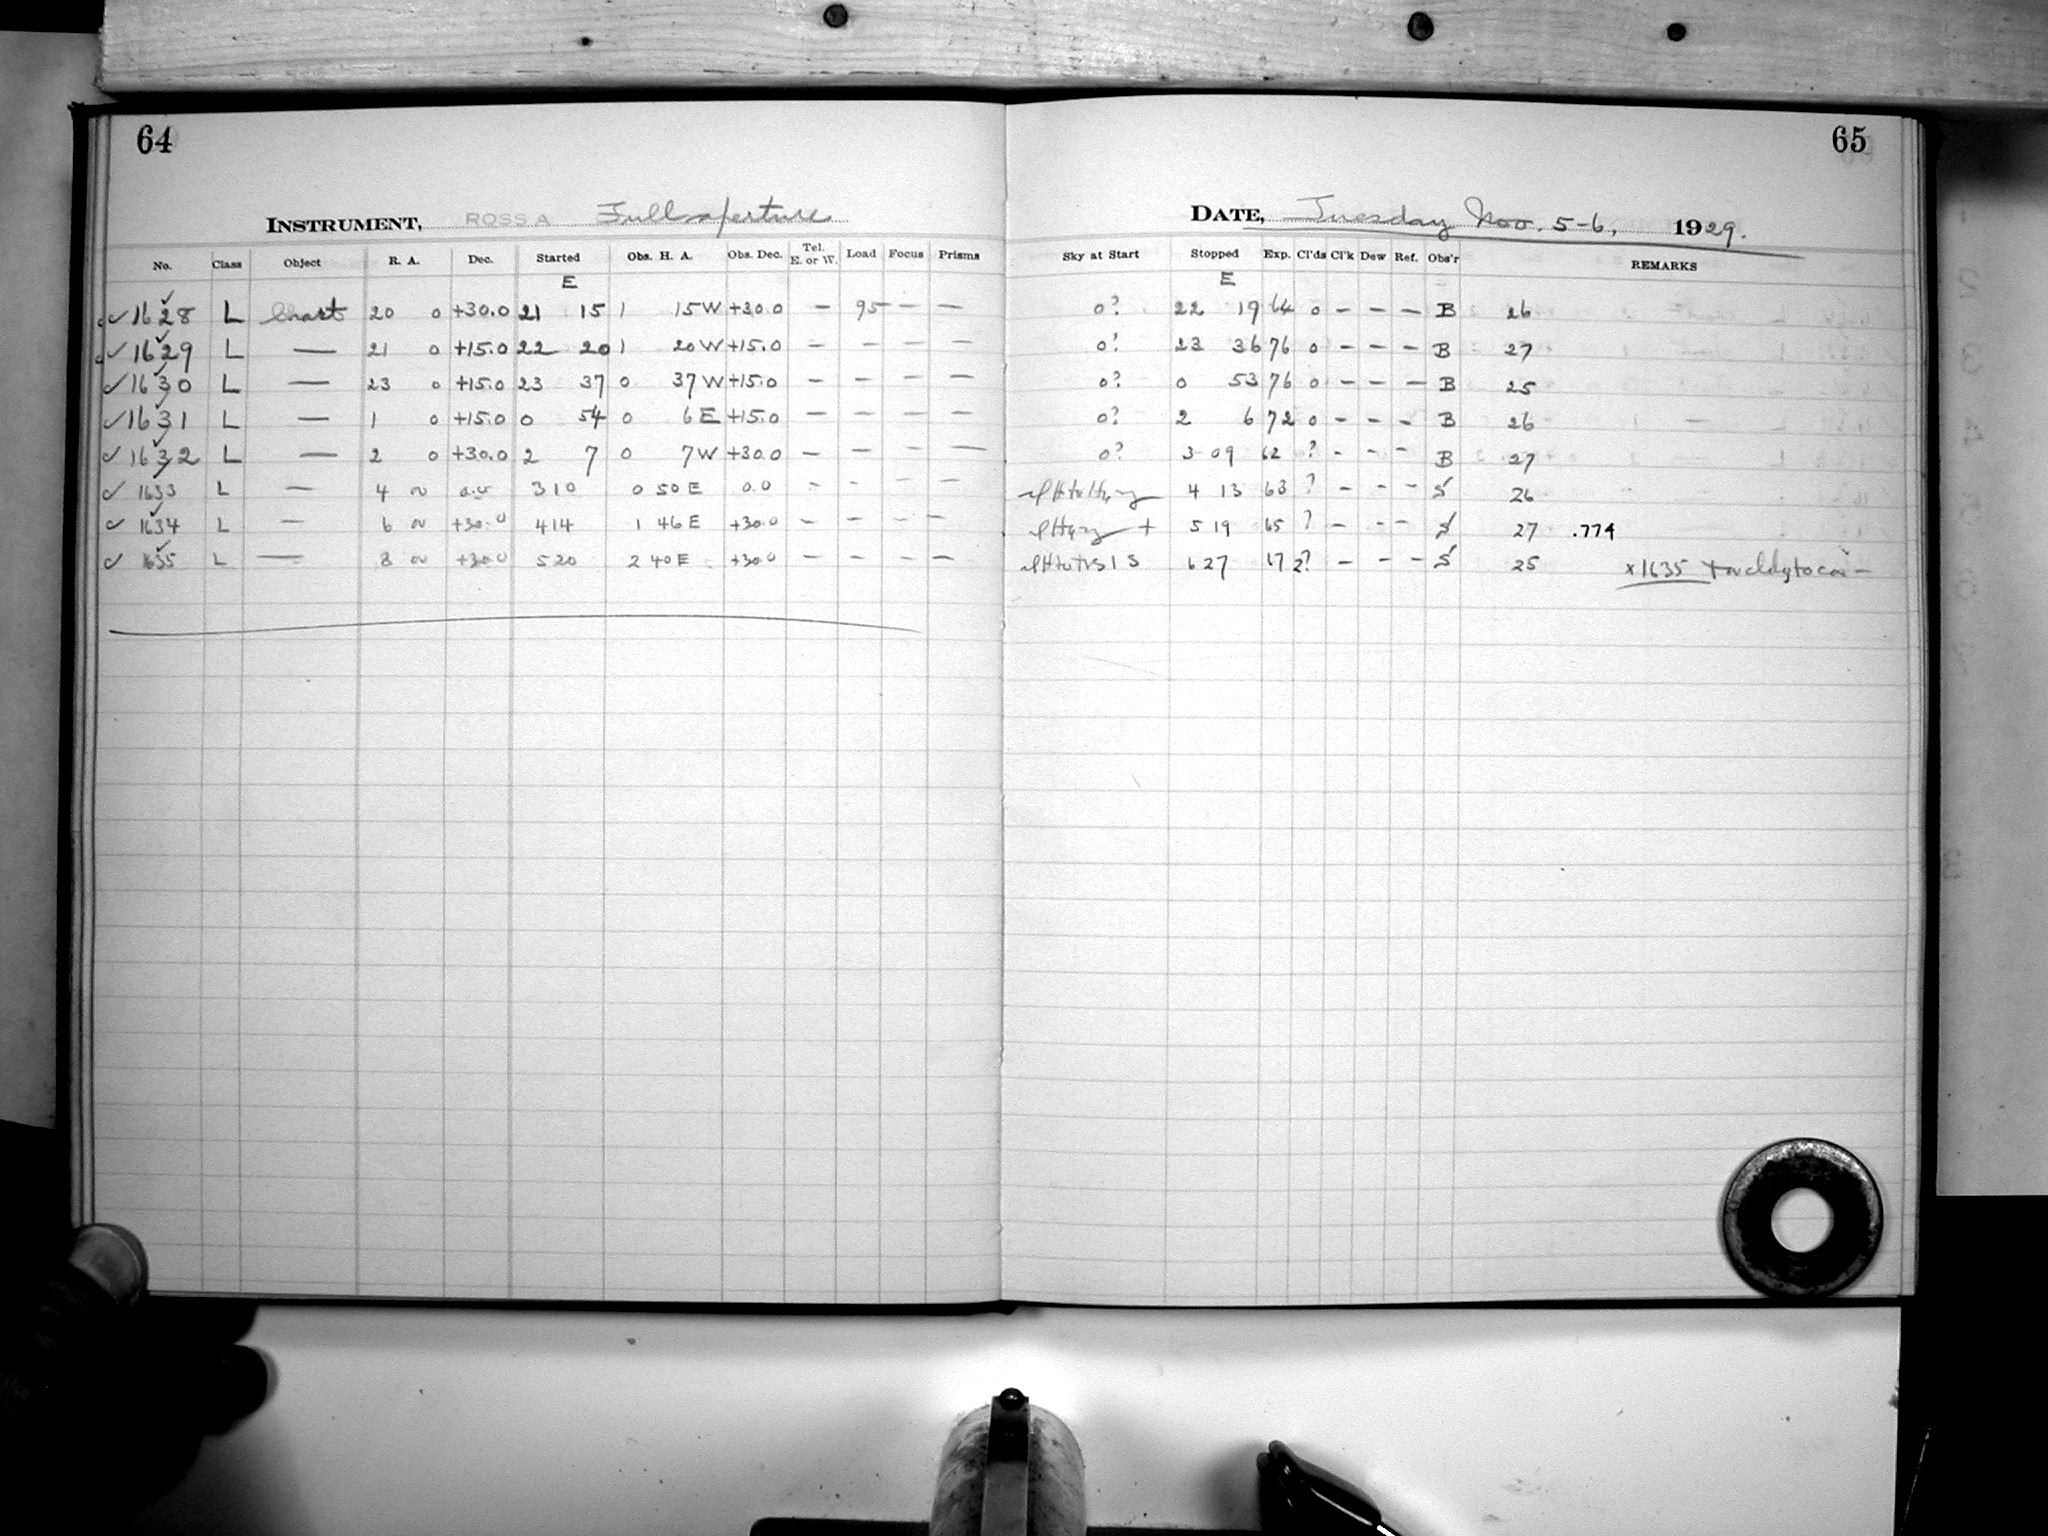 64
INSTRUMENT, ROSS A Full aperture
No. Class Object R. A. Dec. Started Obs. H. A. Obs. Dec. Tel. E. or W. Load Focus Prisms
E
✓ 1628 L Chart 20 0 +30.0 21 15 1 15 W +30.0 — 95 — —
✓ 1629 L — 21 0 +15.0 22 20 1 20 W +15.0 — — — —
✓ 1630 L — 23 0 +15.0 23 37 0 37 W +15.0 — — — —
✓ 1631 L — 1 0 +15.0 0 54 0 6 E +15.0 — — — —
✓ 1632 L — 2 0 +30.0 2 7 0 7 W +30.0 — — — —
✓ 1633 L — 4 0.0 3 10 0 50 E 0.0 — — — —
✓ 1634 L — 6 +30.0 4 14 1 46 E +30.0 — — — —
✓ 1635 L — 8 +30.0 5 20 2 40 E +30.0 — — — —
65
DATE, Tuesday Nov. 5-6, 1929.
Sky at Start Stopped Exp. Cl'ds Cl'k Dew Ref. Obs'r REMARKS
E
0? 22 19 64 0 — — — B 26
0? 23 36 76 0 — — — B 27
0? 0 53 76 0 — — — B 25
0? 2 6 72 0 — — — B 26
0? 3 09 62 ? — — — B 27
4 13 63 ? — — — S 26
+ 5 19 65 ? — — — S 27 .774
6 27 67 2? — — — S 25 x 1635